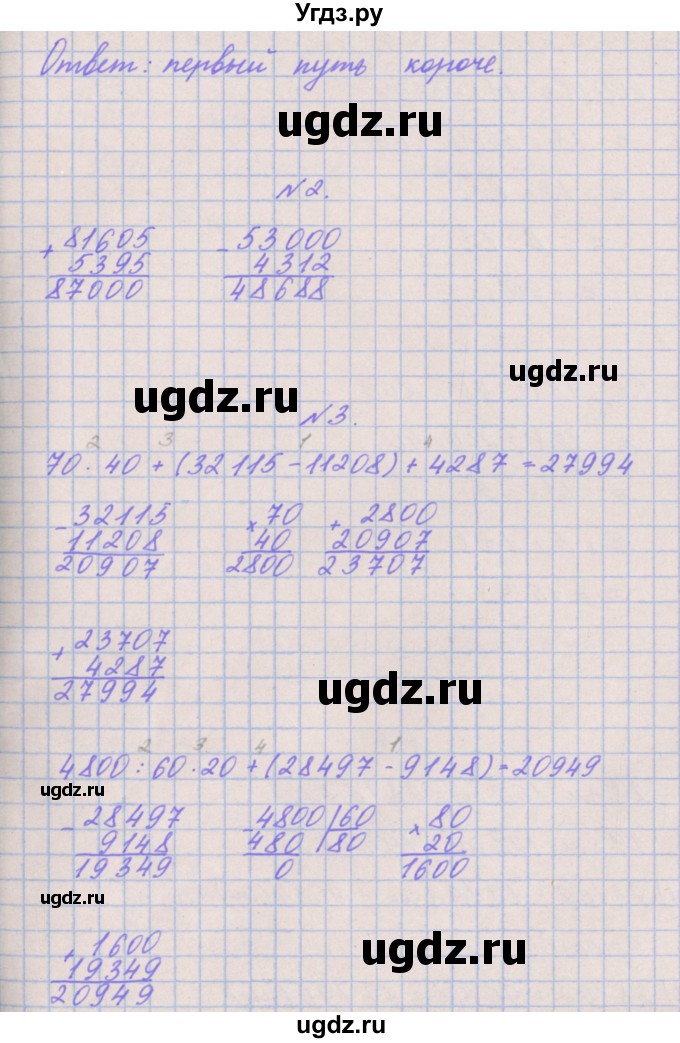 Угдз.ру
Ответ: первый путь короче.
ugdz.ru
N2.
+ 81605 - 53000
5395 4312
87000 48688
ugdz.ru
ugdz.ru
N3.
2 3 1 4
70 · 40 + (32115 - 11208) + 4287 = 27994
- 32115 × 70 + 2800
11208 40 20907
20907 2800 23707
+ 23707
4287
27994
ugdz.ru
2 3 4 1
4800 : 60 · 20 + (28497 - 9148) = 20949
ugdz.ru
- 28497 - 4800 | 60 × 80
9148 480 | 80 20
19349 0 1600
ugdz.ru
+ 1600
19349
20949
ugdz.ru
ugdz.ru